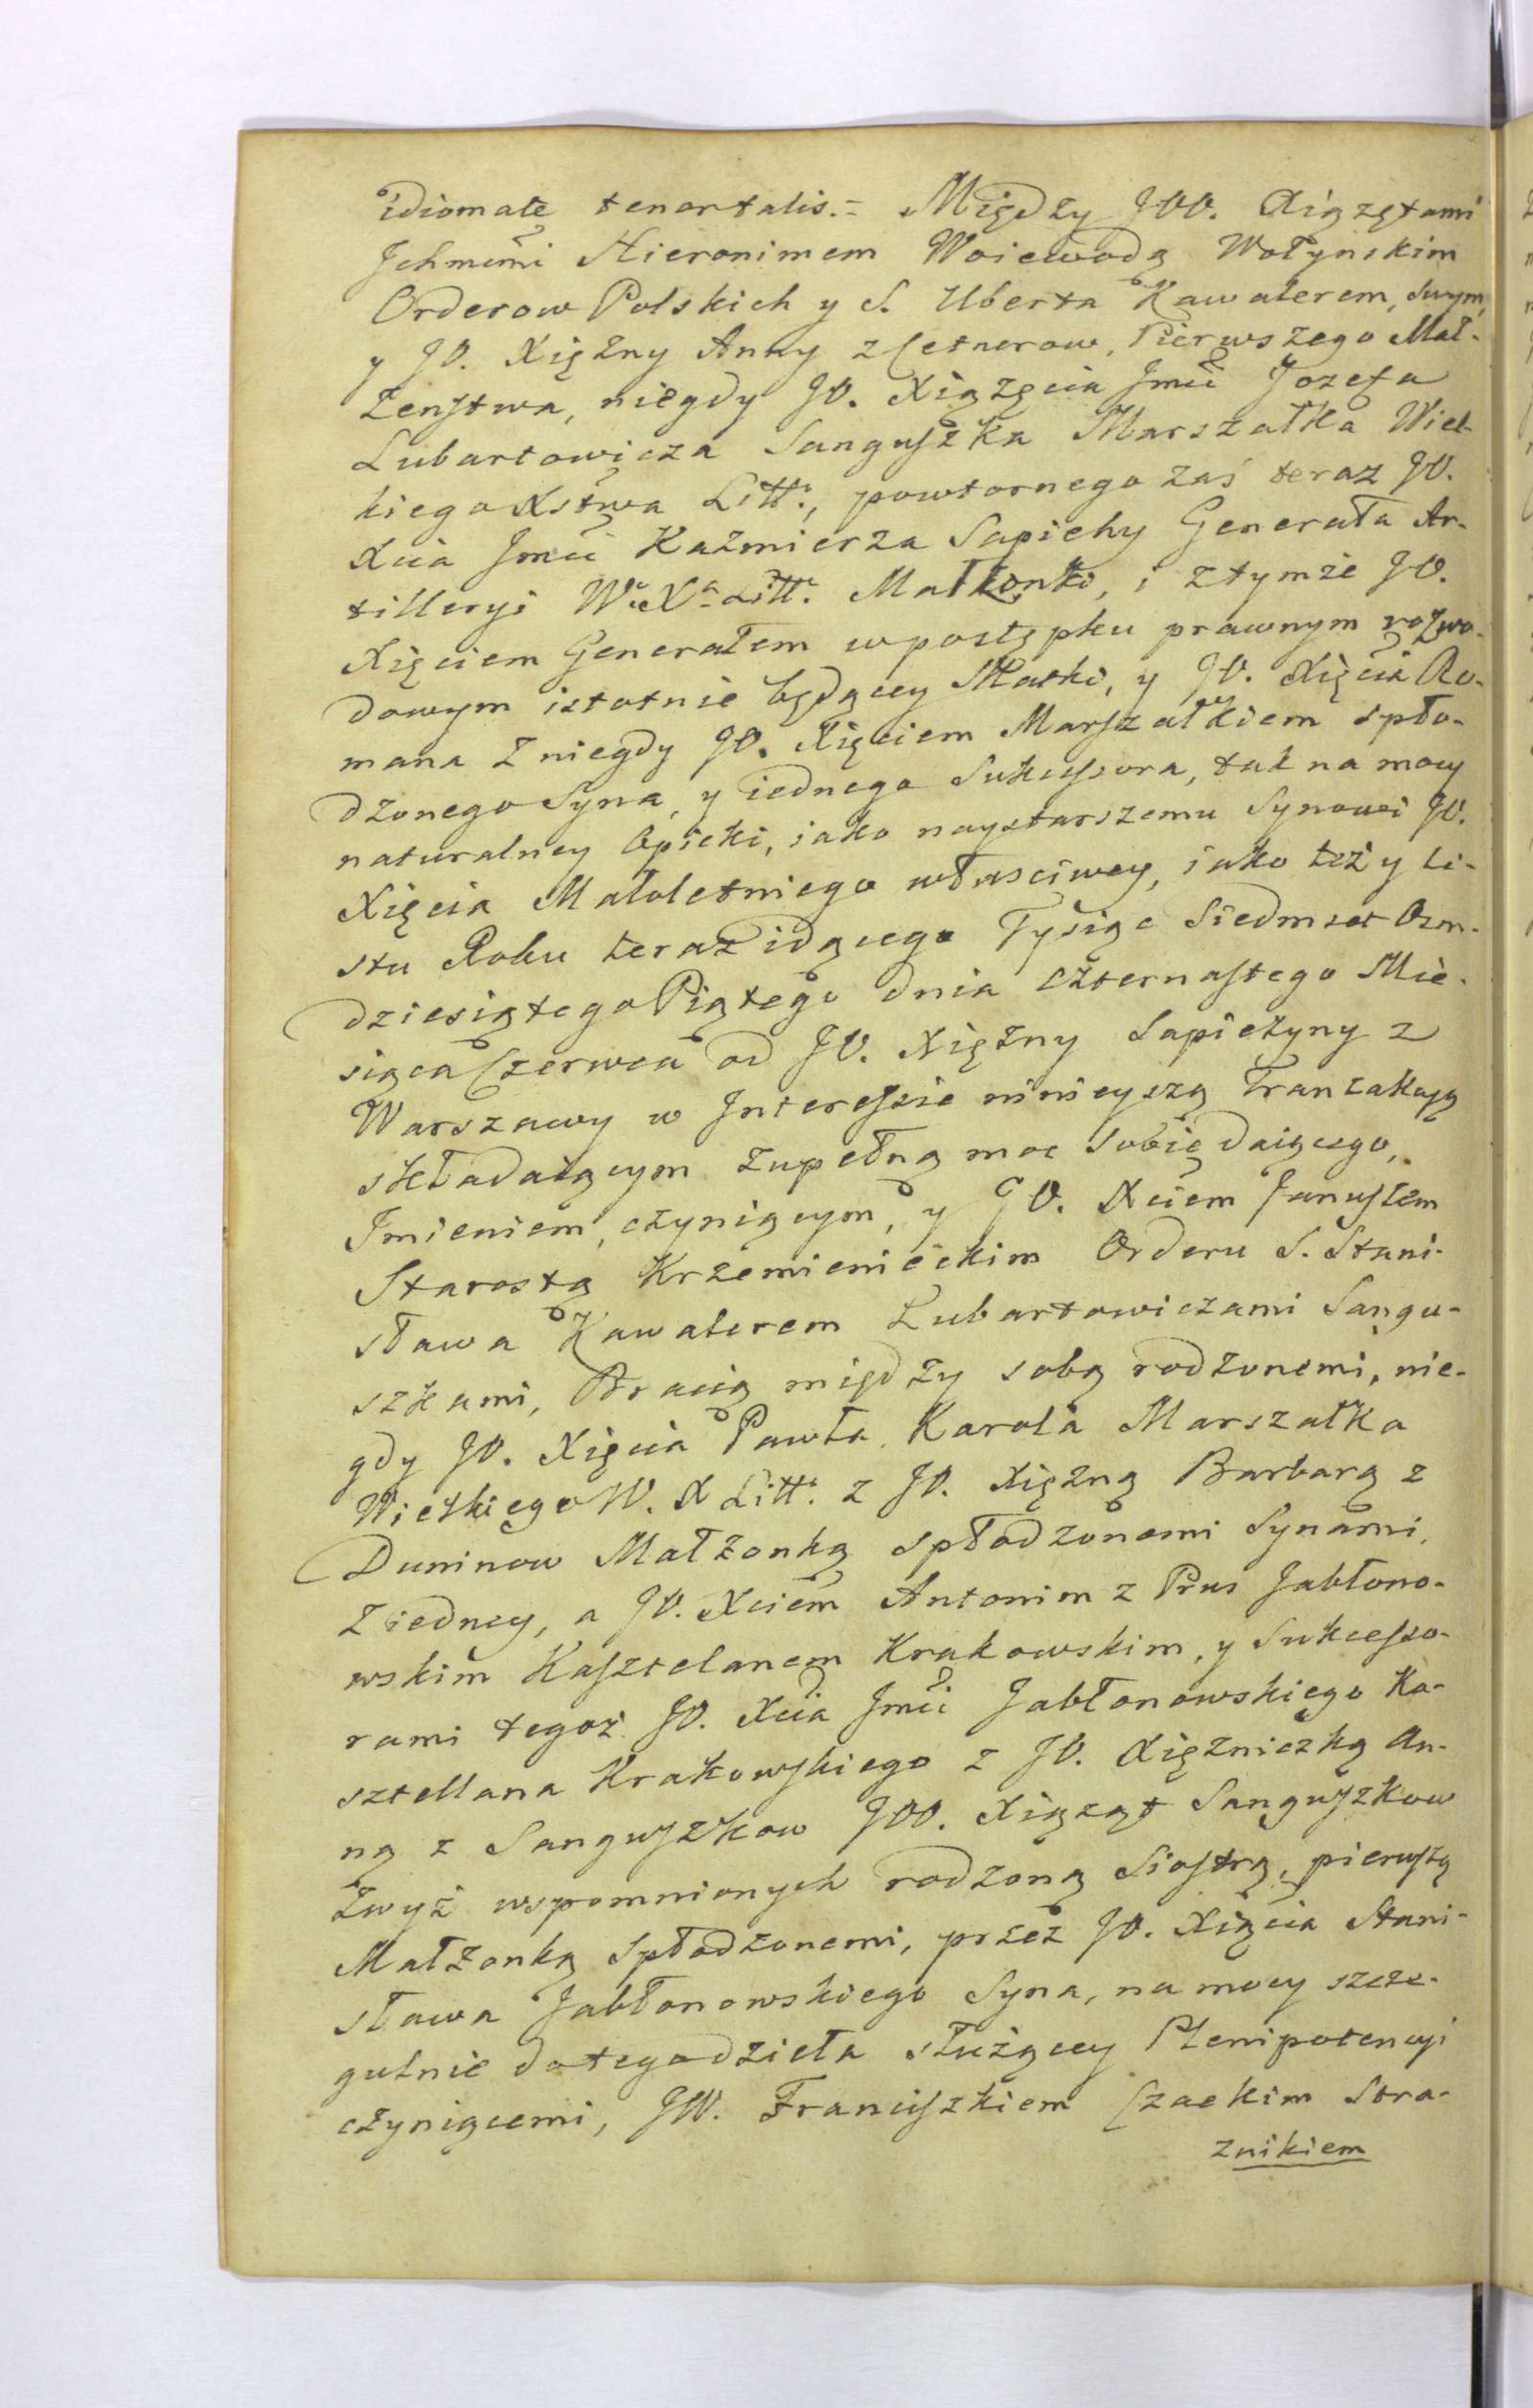 idiomate tenortalis.= Między JOO. Xiążętami
Jchmćmi Hieronimem Woiewodą Wołynskim
Orderow Polskich y S. Uberta Kawalerem, swym,
y JO. Xiężny Anny z Cetnerow, Pierwszego Mał-
żenstwa, niegdy JO. Xiążęcia Jmći Jozefa
Lubartowicza Sanguszka Marszałka Wiel-
kiego Xstwa Litt:, powtornego zaś teraz JO.
Xcia Jmći Kazmierza Sapiehy Generała Ar-
tilleryi W. Xa Litt: Małżonki, i ztymże JO.
Xięciem Generałem wpostępku prawnym rozwo-
dowym istotnie będącey Matki, y JO. Xięcia Ro-
mana z niegdy JO. Xięciem Marszałkiem spło-
dzonego Syna, y iednego Sukcessora, tak na mocy
naturalney Opieki, iako naystarszemu Synowi JO.
Xięcia Małoletniego własciwey, iako też y Li-
stu Roku teraz idącego Tysiąc Siedmset Osm-
dziesiątego Piątego dnia czternastego Mie-
siąca Czerwca od JO. Xiężny Sapieżyny z
Warszawy w Interessie ninieyszą Tranzakcyą
składaiącym zupełną moc sobie daiącego,
Jmieniem, czyniącym, y JO. Xciem Januszem
Starostą Krzemienieckim Orderu S. Stani-
sława Kawalerem Lubartowiczami Sangu-
szkami, Bracią między sobą rodzonemi, nie-
gdy JO. Xięcia Pawła Karola Marszałka
Wielkiego W. X Litt: z JO. Xiężną Barbarą z
Duninow Małżonką spłodzonemi Synami,
z iedney, a JO. Xciem Antonim z Prus Jabłono-
wskim Kasztelanem Krakowskim, y Sukcesso-
rami tegoż JO. Xcia Jmći Jabłonowskiego Ka-
sztellana Krakowskiego z JO. Xiężniczką An-
ną z Sanguszkow JOO. Xiąząt Sanguszkow
zwyż wspomnionych rodzoną Siostrą, pierwszą
Małżonką spłodzonemi, przez JO. Xięcia Stani-
sława Jabłonowskiego Syna, na mocy szcze-
gulnie dotegodzieła służącey Plenipotencyi
czyniącemi, JW. Franciszkiem Czackim Stra-
znikiem